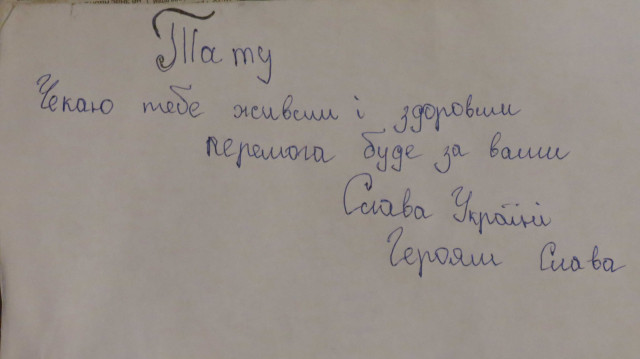 Тату
Чекаю тебе живим і здоровим
перемога буде за вами
Слава Україні
Героям Слава